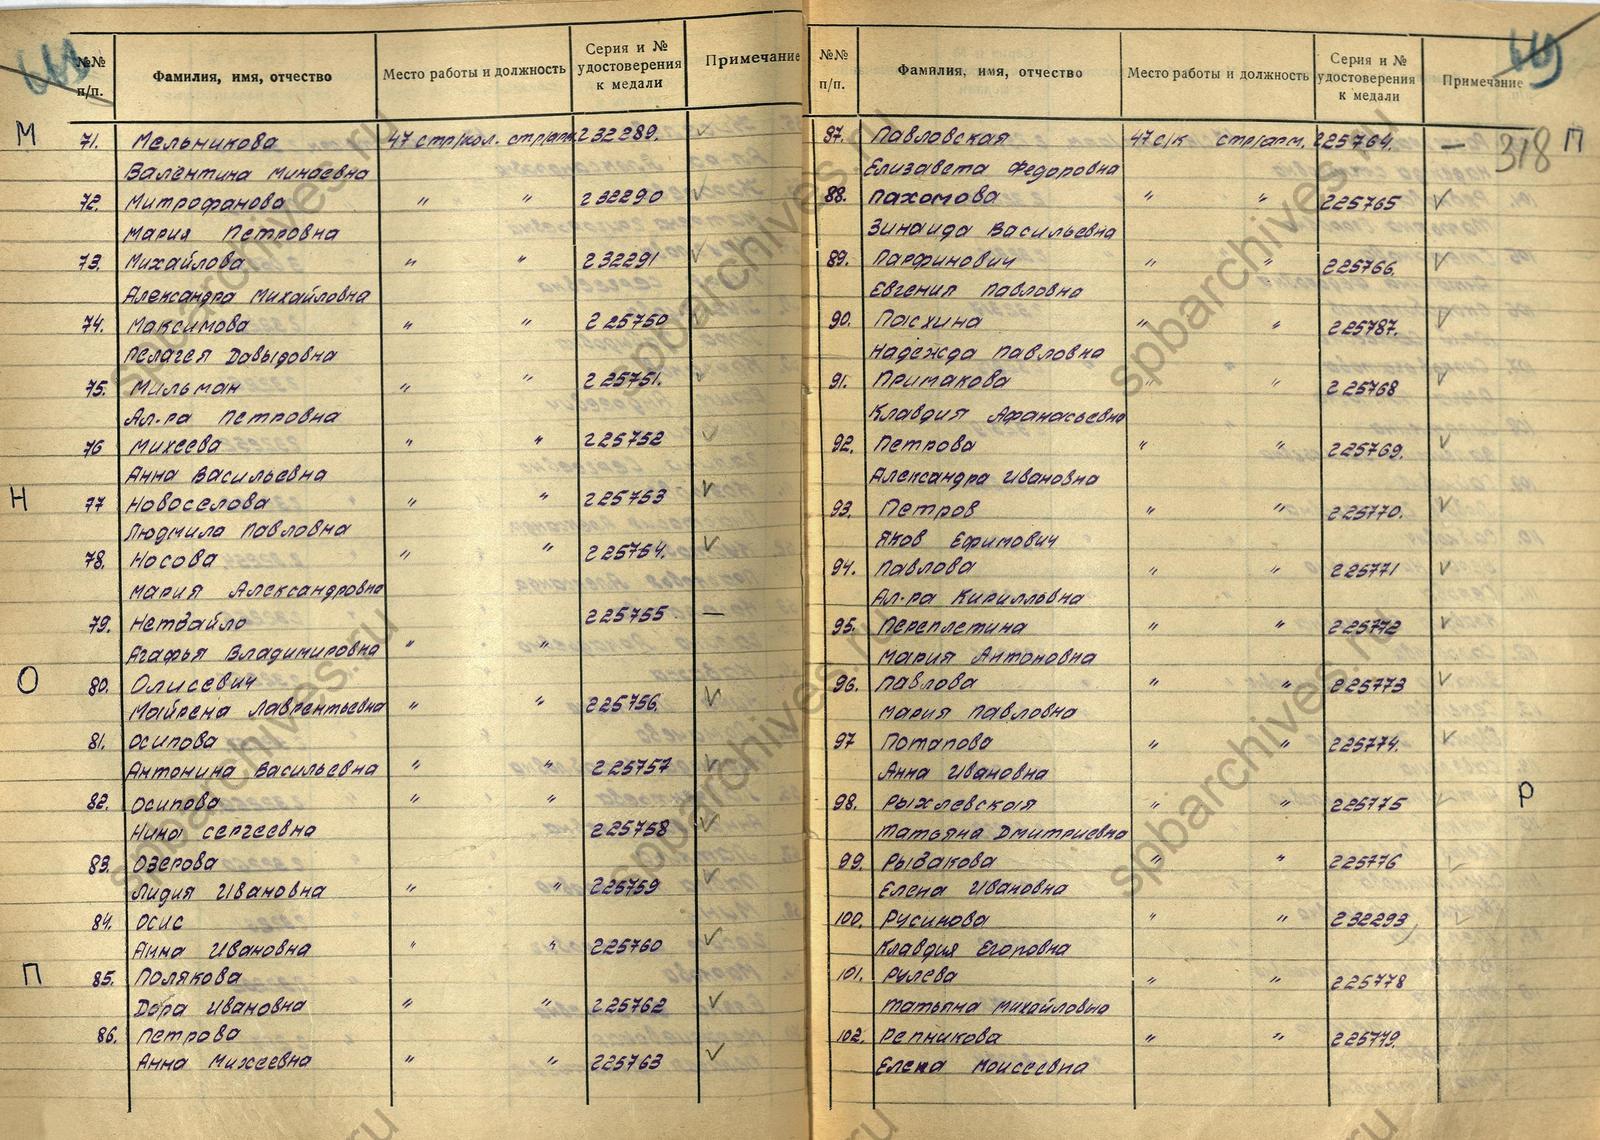 №№ п/п. Фамилия, имя, отчество Место работы и должность Серия и № удостоверения к медали Примечание
М 71. Мельникова 47 стр/кол. стр/арм. 232289.
Валентина Минаевна
72. Митрофанова " " 232290 ✓
Мария Петровна
73. Михайлова " " 232291 ✓
Александра Михайловна
74. Максимова " " 225750
Пелагея Давыдовна
75. Мильман " " 225751.
Ал-ра Петровна
76 Михеева " " 225752 ✓
Анна Васильевна
Н 77 Новоселова " " 225753 ✓
Людмила Павловна
78. Носова " " 225754. ✓
Мария Александровна
79. Нетвайло 225755 —
Агафья Владимировна " "
О 80. Олисевич
Майрена Лаврентьевна " " 225756. ✓
81. Осипова
Антонина Васильевна " " 225757 ✓
82. Осипова " "
Нина Сергеевна 225758 ✓
83. Озерова
Лидия Ивановна " " 225759 ✓
84. Осис
Анна Ивановна " " 225760 ✓
П 85. Полякова
Дора Ивановна " " 225762 ✓
86. Петрова
Анна Михеевна " " 225763 ✓
№№ п/п. Фамилия, имя, отчество Место работы и должность Серия и № удостоверения к медали Примечание
87. Павловская 47 с/к стр/арм. 225764. — 318 П
Елизавета Федоровна
88. Пахомова " " 225765 ✓
Зинаида Васильевна
89. Парфинович " " 225766. ✓
Евгения Павловна
90. Пасхина " " 225787. ✓
Надежда Павловна
91. Примакова " " 225768 ✓
Клавдия Афанасьевна
92. Петрова " " 225769. ✓
Александра Ивановна
93. Петров " " 225770. ✓
Яков Ефимович
94. Павлова " " 225771 ✓
Ал-ра Кирилльвна
95. Переплетина " " 225772 ✓
Мария Антоновна
96. Павлова " " 225773 ✓
Мария Павловна
97 Потапова " " 225774. ✓
Анна Ивановна
98. Рыхлевская " " 225775 Р
Татьяна Дмитриевна
99. Рыбакова " " 225776
Елена Ивановна
100. Русинова " " 232293
Клавдия Егоровна
101. Рулева " " 225778
Татьяна Михайловна
102. Репникова " " 225779.
Елена Моисеевна
spbarchives.ru